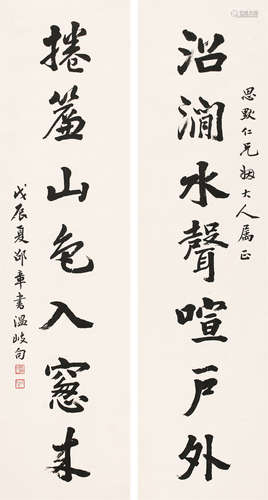 思默仁兄姻大人属正
沿澗水聲喧戶外
捲簾山色入窗来
戊辰夏邵章書温岐句